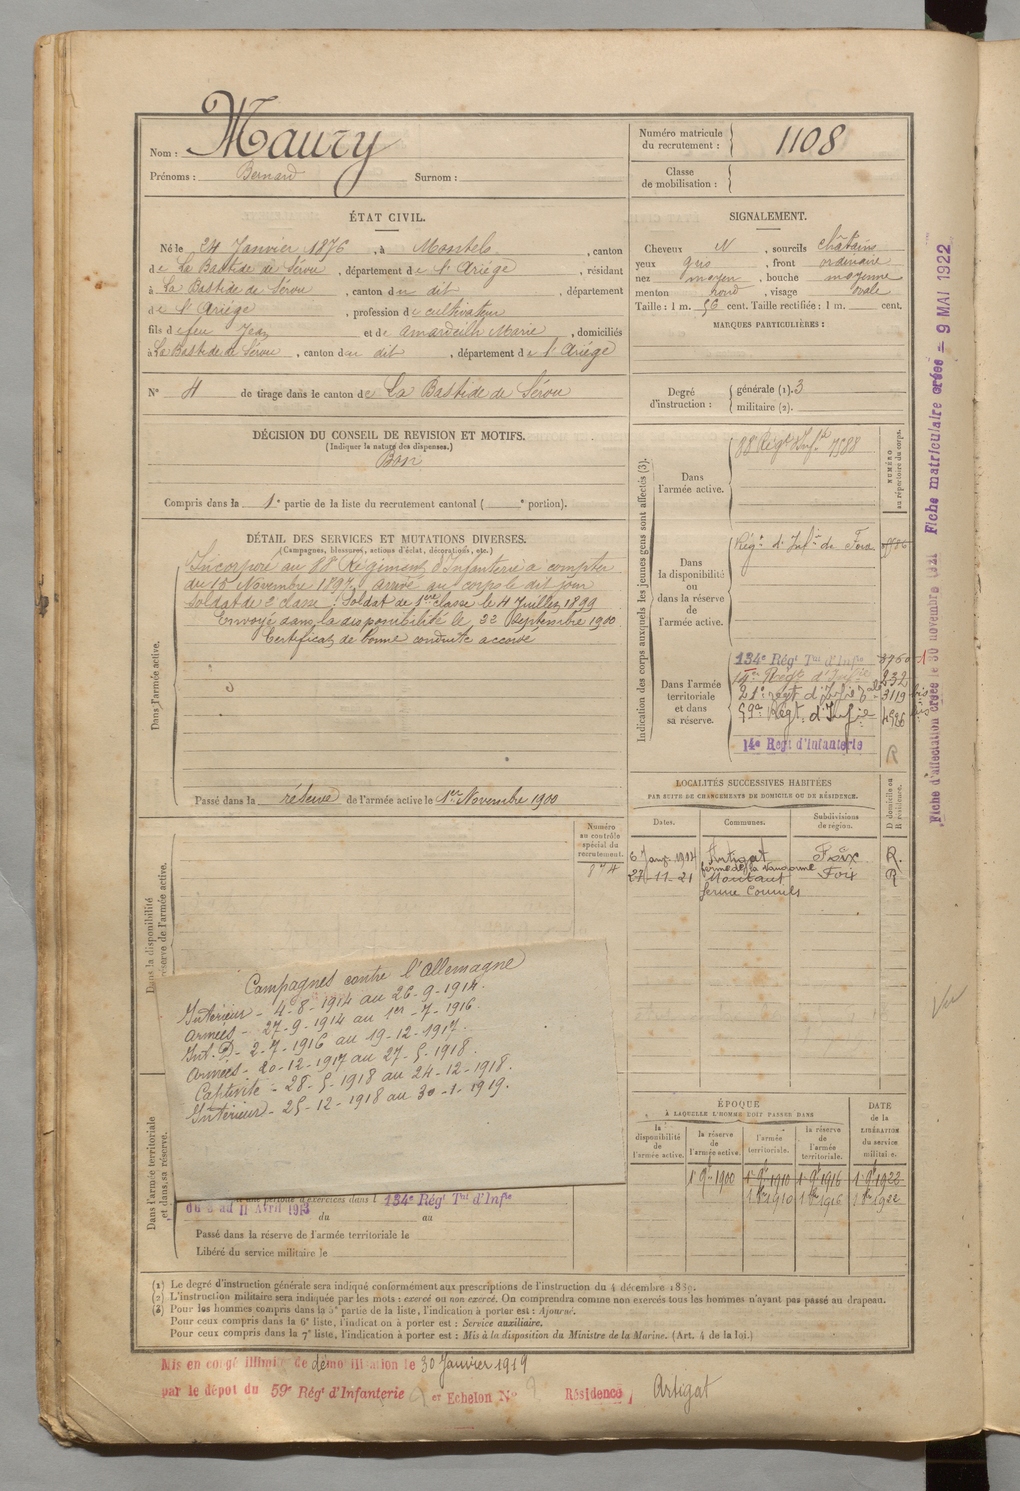 Nom : Maury
Prénoms : Bernard Surnom :
Numéro matricule du recrutement : 1108
Classe de mobilisation :
ÉTAT CIVIL.
Né le 24 Janvier 1876, à Montels, canton
de La Bastide de Sérou, département de l'Ariége, résidant
à La Bastide de Sérou, canton du dit, département
de l'Ariége, profession de cultivateur
fils de feu Jean et de Amardeilh Marie, domiciliés
à La Bastide de Sérou, canton du dit, département de l'Ariége
N° 4 de tirage dans le canton de La Bastide de Sérou
SIGNALEMENT.
Cheveux N, sourcils châtains
yeux gris, front ordinaire
nez moyen, bouche moyenne
menton rond, visage ovale
Taille : 1 m. 56 cent. Taille rectifiée : 1 m. cent.
MARQUES PARTICULIÈRES :
Degré d'instruction : générale (1). 3
militaire (2).
DÉCISION DU CONSEIL DE REVISION ET MOTIFS.
(Indiquer la nature des dispenses.)
Bon
Compris dans la 1e partie de la liste du recrutement cantonal ( e portion).
DÉTAIL DES SERVICES ET MUTATIONS DIVERSES.
(Campagnes, blessures, actions d'éclat, décorations, etc.)
Dans l'armée active.
Incorporé au 88e Régiment d'Infanterie a compter
du 15 Novembre 1897, arrivé au corps le dit jour
soldat de 2e classe. Soldat de 1ère classe le 4 Juillet 1899
Envoyé dans la disponibilité le 22 Septembre 1900
Certificat de bonne conduite accordé
Passé dans la réserve de l'armée active le 1er Novembre 1900
Indication des corps auxquels les jeunes gens sont affectés (3).
NUMÉRO au répertoire du corps.
Dans l'armée active.
88e Régt d'Inf. 7588
Dans la disponibilité ou dans la réserve de l'armée active.
Régt d'Infie de Foix
Dans l'armée territoriale et dans sa réserve.
134e Régt Tal d'Infie
21e régt d'infie 3119 bis
59e Régt d'Infie 4526 bis
14e Régt d'Infanterie
R
LOCALITÉS SUCCESSIVES HABITÉES
PAR SUITE DE CHANGEMENTS DE DOMICILE OU DE RÉSIDENCE.
Dates. Communes. Subdivisions de région. D domicile ou R résidence.
6 Janv. 1914 Artigat Foix R.
27-11-21 Montaut Foix R
Numéro au contrôle spécial du recrutement.
Dans la disponibilité
réserve de l'armée active.
Campagnes contre l'Allemagne
Intérieur - 4-8-1914 au 26-9-1914.
Armées - 27-9-1914 au 1er-7-1916.
Int. D - 2-7-1916 au 19-12-1917.
Armées - 20-12-1917 au 27-5-1918.
Captivité - 28-5-1918 au 24-12-1918.
Intérieur - 25-12-1918 au 30-1-1919.
Dans l'armée territoriale et dans sa réserve.
une période d'exercices dans l 134e Régt Tal d'Infie
du 2 au 11 Avril 1913 du au
Passé dans la réserve de l'armée territoriale le
Libéré du service militaire le
ÉPOQUE
À LAQUELLE L'HOMME DOIT PASSER DANS
la disponibilité de l'armée active. la réserve de l'armée active. l'armée territoriale. la réserve de l'armée territoriale.
DATE de la LIBÉRATION du service militaire.
1er 9bre 1900 1er 9bre 1910 1er 9bre 1916 1er 9bre 1922
1er 8bre 1910 1er 8bre 1916 1er 8bre 1922
(1) Le degré d'instruction générale sera indiqué conformément aux prescriptions de l'instruction du 4 décembre 1889.
(2) L'instruction militaire sera indiquée par les mots : exercé ou non exercé. On comprendra comme non exercés tous les hommes n'ayant pas passé au drapeau.
(3) Pour les hommes compris dans la 5e partie de la liste, l'indication à porter est : Ajourné.
Pour ceux compris dans la 6e liste, l'indication à porter est : Service auxiliaire.
Pour ceux compris dans la 7e liste, l'indication à porter est : Mis à la disposition du Ministre de la Marine. (Art. 4 de la loi.)
Mis en congé illimité de démobilisation le 30 Janvier 1919
par le dépôt du 59e Régt d'Infanterie Echelon N° Résidence Artigat
Fiche d'affectation créée le 30 novembre 1921 Fiche matriculaire créée = 9 MAI 1922
Vu